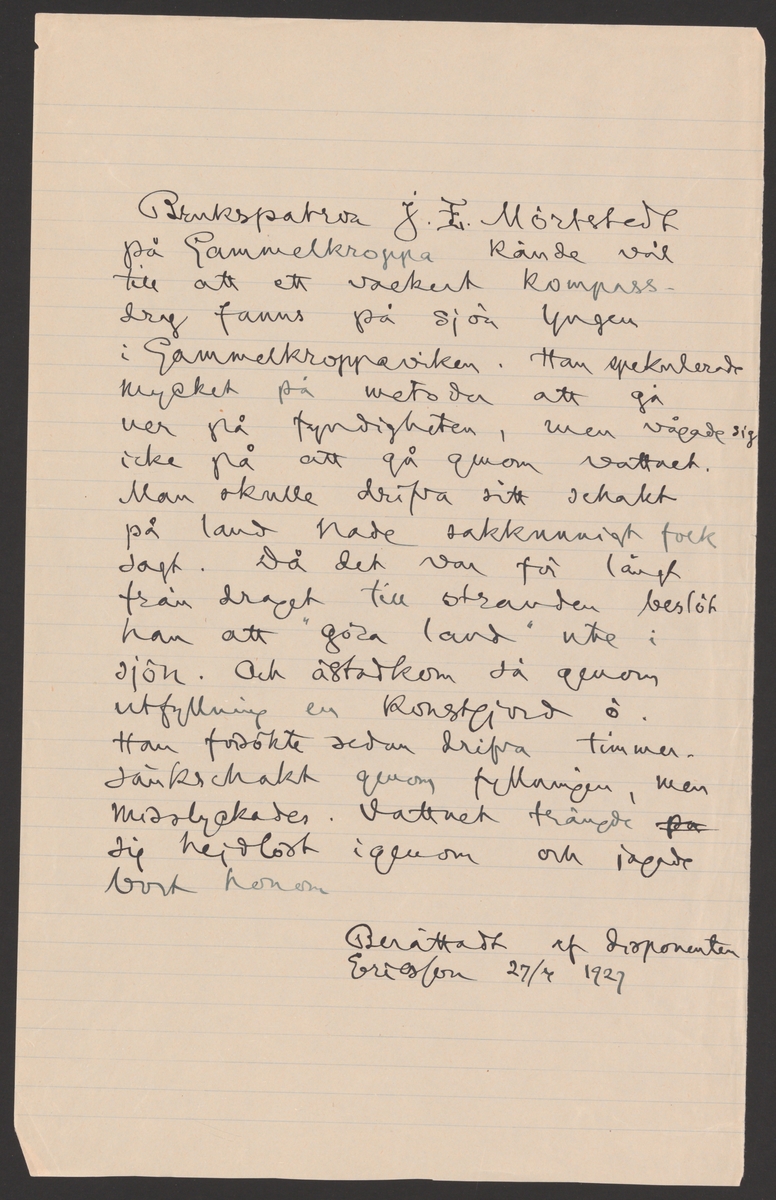 Brukspatron J. E. Mörtstedt
på Gammelkroppa kände väl
till att ett vackert kompass-
drag fanns på sjön Yngen
i Gammelkroppaviken. Han spekulerade
mycket på metoder att gå
ner på fyndigheten, men vågade sig
icke på att gå genom vattnet.
Man skulle drifva sitt schakt
på land hade sakkunnigt folk
sagt. Då det var för långt
från draget till stranden beslöt
han att "göra land" ute i
sjön. Och åstadkom så genom
utfyllning en konstgjord ö.
Han försökte sedan drifva timmer-
sänkschakt genom fyllningen, men
misslyckades. Vattnet trängde
sig hejdlöst igenom och jagade
bort honom
Berättadt af disponenten
Ericsson 27/7 1927